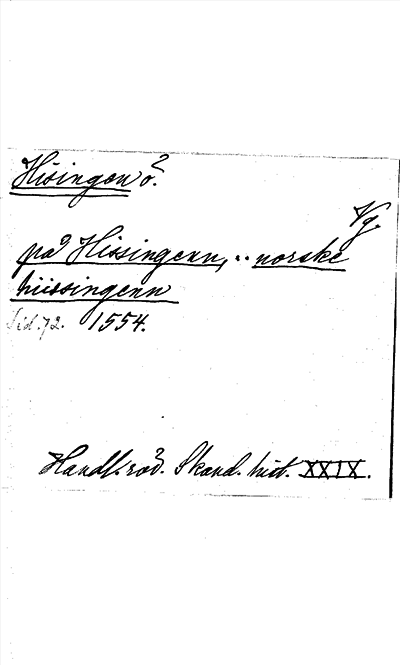 Hisingen ö.
Vg
på Hissingenn, .. norske
hiissingenn
Sid. 72. 1554.
Handl. rö. Skand. hist. XXIX.